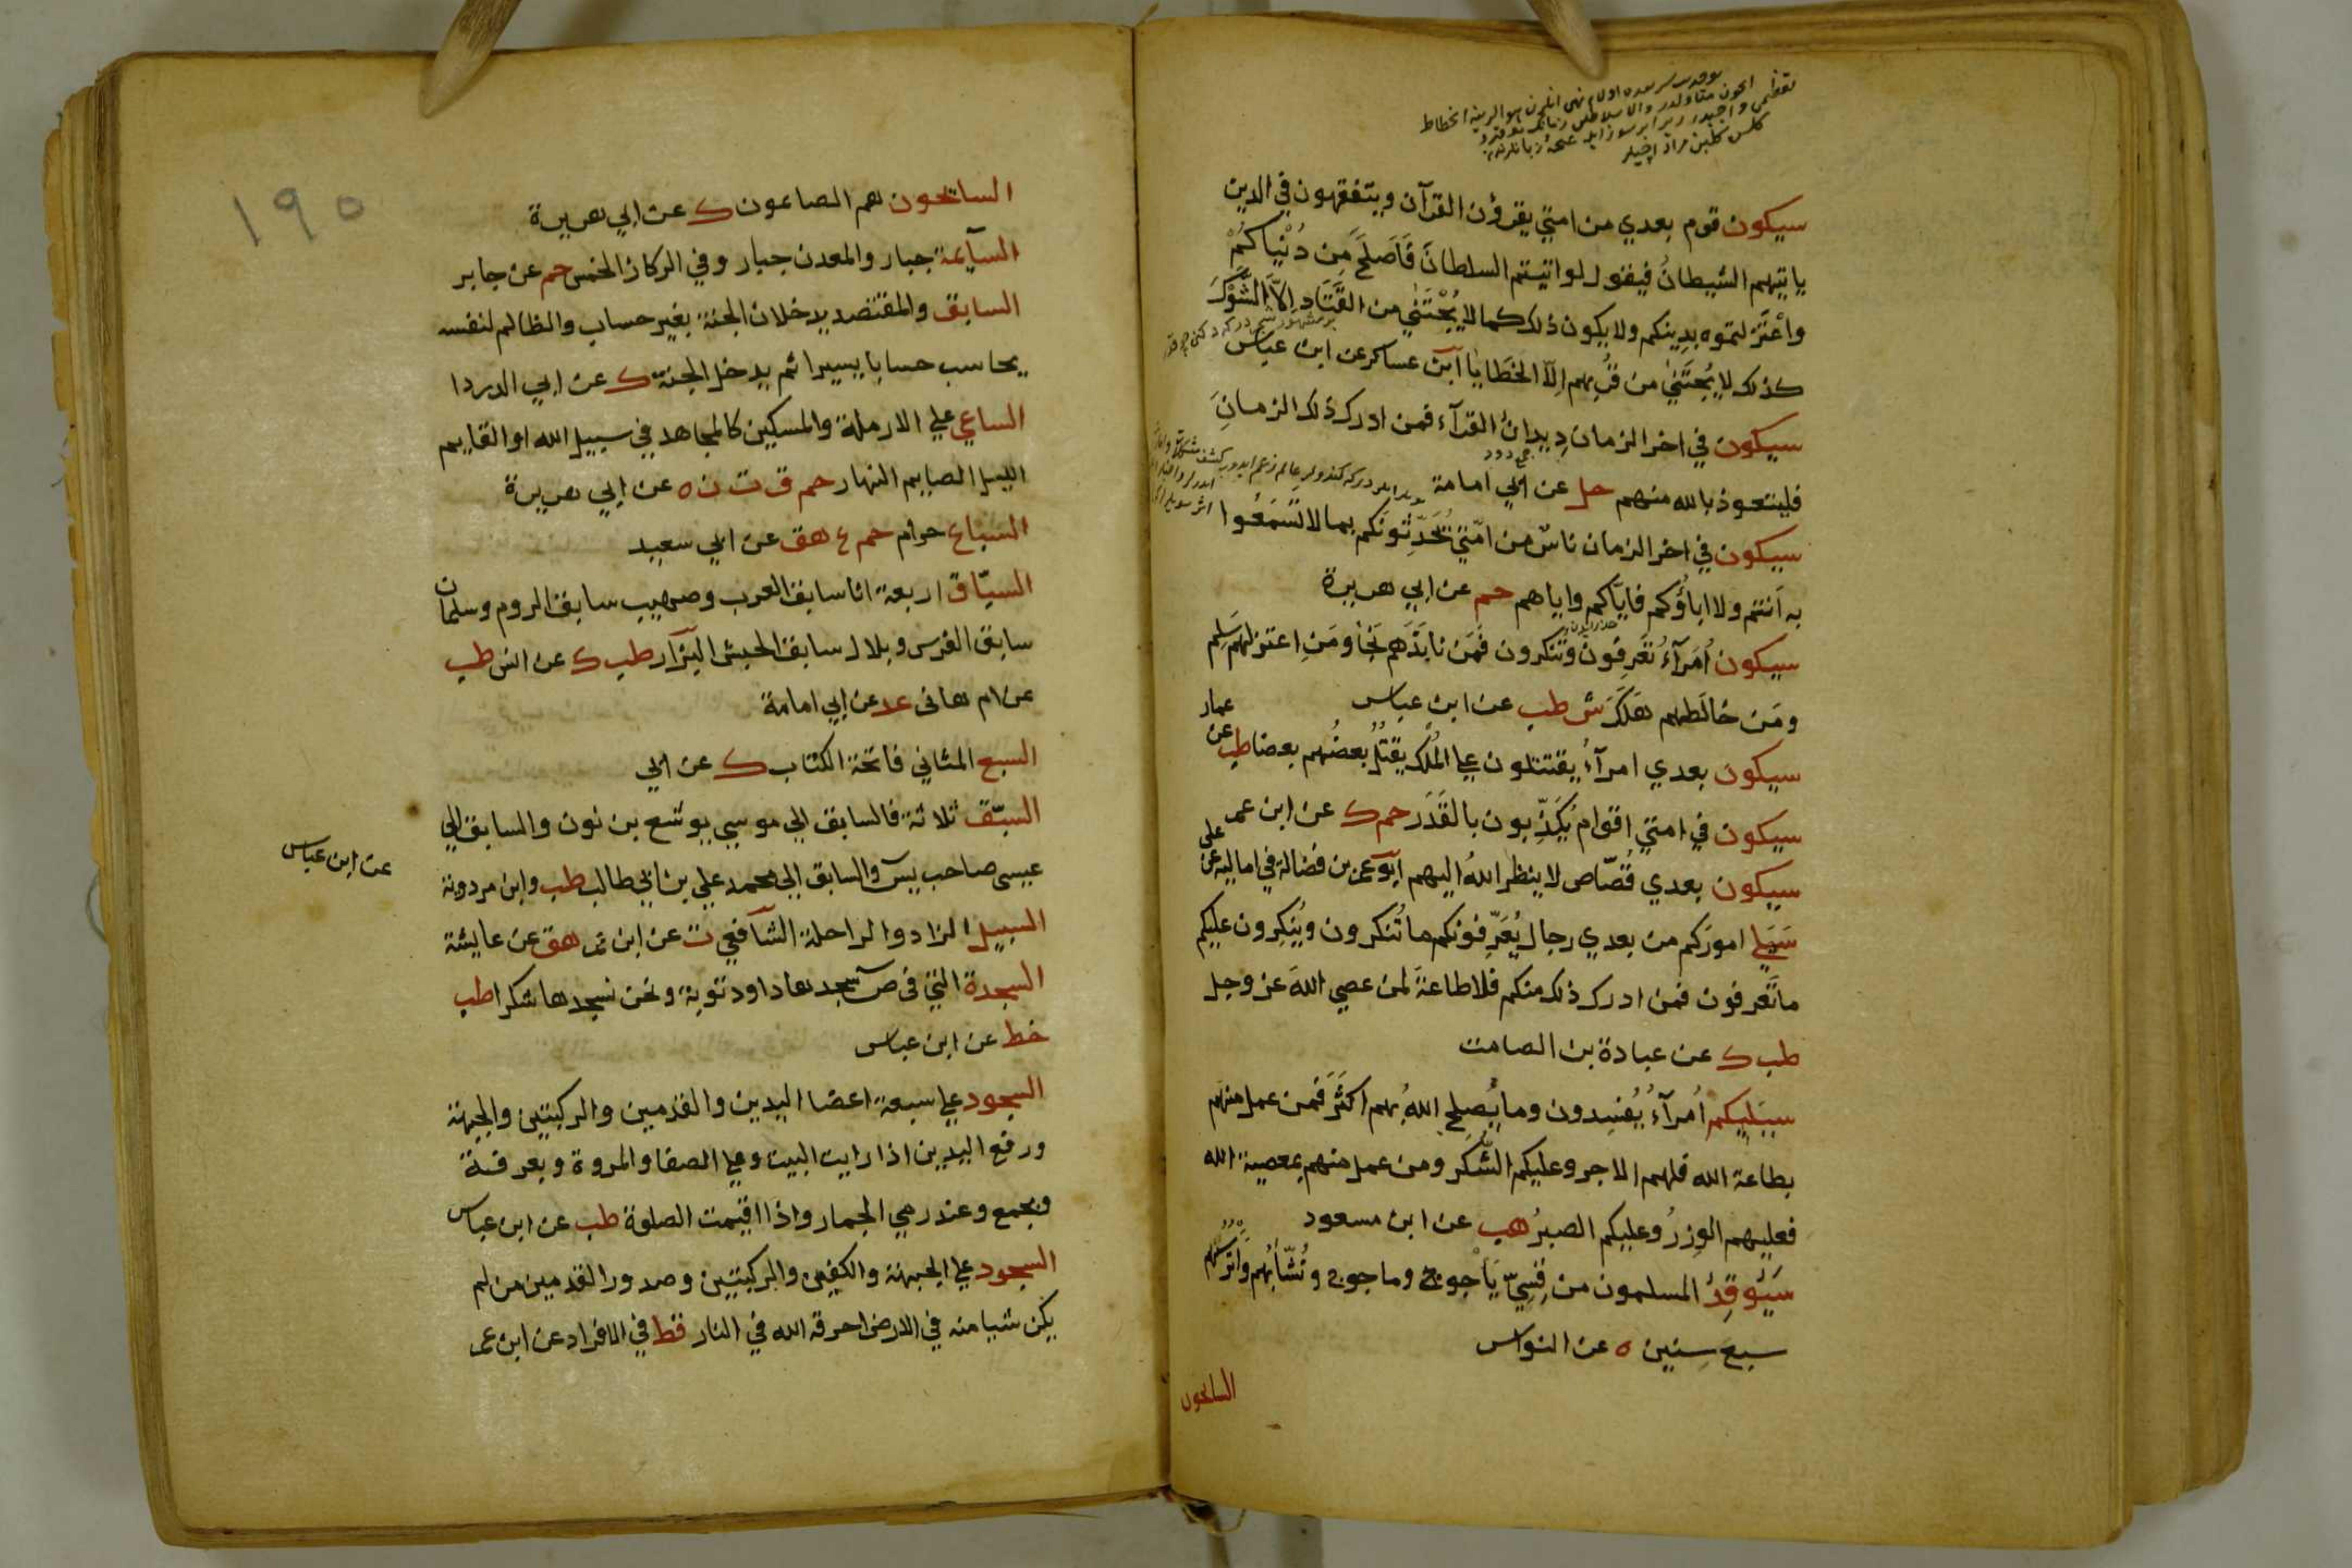 سيكون قوم بعدي من امتي يقرؤن القرآن ويتفقهون في الدين
ياتيهم الشيطانُ فيقول لواتيتم السلطانَ فَاَصلَحَ مِن دُنْياكُمْ
واعْتَزلتموه بِدِينكم ولا يكون ذلك كما لا يُجْتَنٰي من القَتَادِ اِلَّا الشَّوْكَ
كذلك لا يُجتَنٰي من قُربهم اِلّا الخَطَايَا ابن عساكر عن ابن عباس
سيكون في اخر الزمان دِيدانُ القرآء فمن ادرك ذلك الزمانَ
فليتعوذ بالله منهم حل عن ابي امامة
سيكون في اخر الزمان ناسٌ من امّتي يُحَدِّثونَكم بما لا تَسمَعُوا
به اَنتم ولا اباؤُكم فايّاكم واياهم حم عن ابي هريرة
سيكون اُمَرآءُ تَعرِفُونَ وتُنكرون فَمَن نابَذَهم نَجَا ومَنِ اعتزلهم سَلِم
ومَن خالَطهم هَلَكَ ش طب عن ابن عباس
سيكون بعدي امرآءُ يقتتلون علي المُلك يقتُلُ بعضُهم بعضا طب عن
عمار
سيكون في امتي اقوامٌ يُكَذِّبون بالقَدَر حم ك عن ابن عمر
سيكون بعدي قُصّاص لا ينظر اللهُ اليهم ابو عمر بن فضالة في اماليه عن
علي
سَيَلي امورَكم من بعدي رجال يُعَرِّفونَكم ما تُنكرون ويُنكِرون عليكم
ما تَعرفون فمن ادرك ذلك منكم فلا طاعةَ لمن عصي اللهَ عز وجل
طب ك عن عبادة بن الصامت
سيَلِيكم اُمرآءُ يُفسِدون وما يُصلِح اللهُ بهم اكثَرَ فمن عمل منهم
بطاعة الله فلهم الاجر وعليكم الشّكر ومن عمل منهم بمعصية الله
فعليهم الوِزرُ وعليكم الصبرُ هب عن ابن مسعود
سَيُوقِدُ المسلمون من قِسِيّ يَاْجوج وماجوج ونُشّابِهم واَترِسَتِهم
سبع سِنين ه عن النواس
السائحون
١٩٥
السائحون هم الصائمون ك عن ابي هريرة
السآيمة جبار والمعدن جبار وفي الركاز الخمس حم عن جابر
السابق والمقتصد يدخلان الجنة بغير حساب والظالم لنفسه
يحاسب حسابا يسيرا ثم يدخل الجنة ك عن ابي الدردا
الساعي علي الارملة والمسكين كالمجاهد في سبيل الله او القايم
الليل الصايم النهار حم ق ت ن ه عن ابي هريرة
السباع حرام حم ع هق عن ابي سعيد
السبّاق اربعة انا سابق العرب وصهيب سابق الروم وسلمان
سابق الفرس وبلال سابق الحبش البزار طب ك عن انس طب
عن ام هانى عد عن ابي امامة
السبع المثاني فاتحة الكتاب ك عن ابي
السبّق ثلاثة فالسابق الي موسي يوشع بن نون والسابق الي
عيسى صاحب يس والسابق الي محمد علي بن ابي طالب طب وابن مردوية
عن ابن عباس
السبيل الزاد والراحلة الشافعي ت عن ابن عمر هق عن عايشة
السجدة التي فى ص سجدها داود توبة ونحن نسجدها شكرا طب
خط عن ابن عباس
السجود علي سبعة اعضا اليدين والقدمين والركبتين والجبهة
ورفع اليدين اذا رايت البيت وعلي الصفا والمروة وبعرفة
وبجمع وعند رمي الجمار واذا اقيمت الصلوة طب عن ابن عباس
السجود علي الجبهة والكفين والركبتين وصدور القدمين من لم
يكن شيا منه في الارض احرقه الله في النار قط في الافراد عن ابن عمر